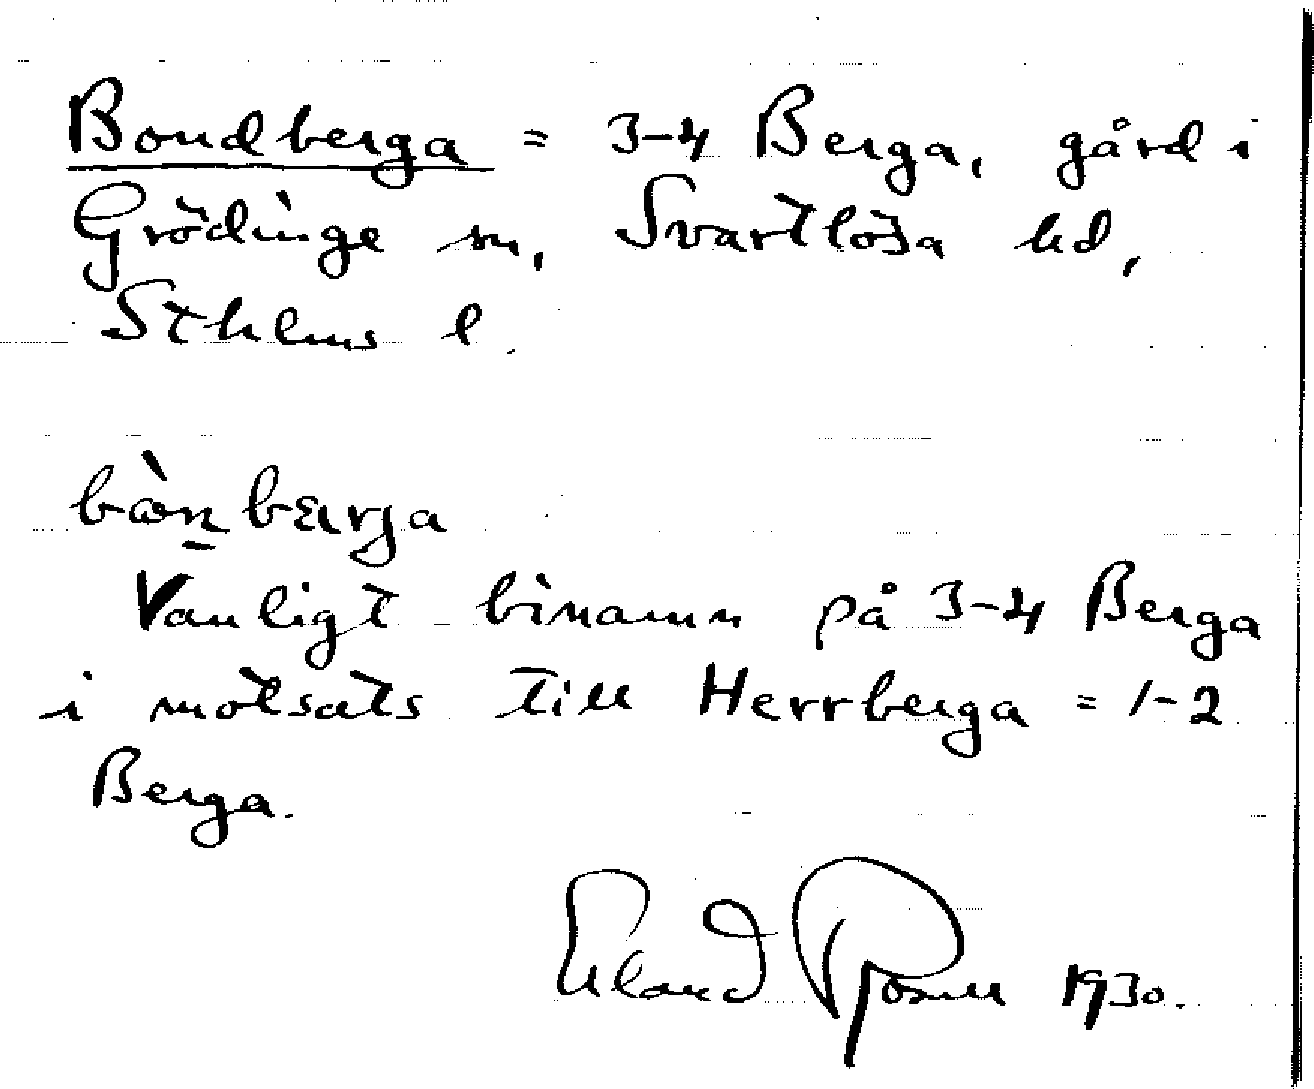 Bondberga = 3-4 Berga, gård i
Grödinge sn, Svartlösa hd,
Sthlms l.
bò̀n bærga
Vanligt binamn på 3-4 Berga
i motsats till Herrberga = 1-2
Berga.
Erland Rosell 1930.